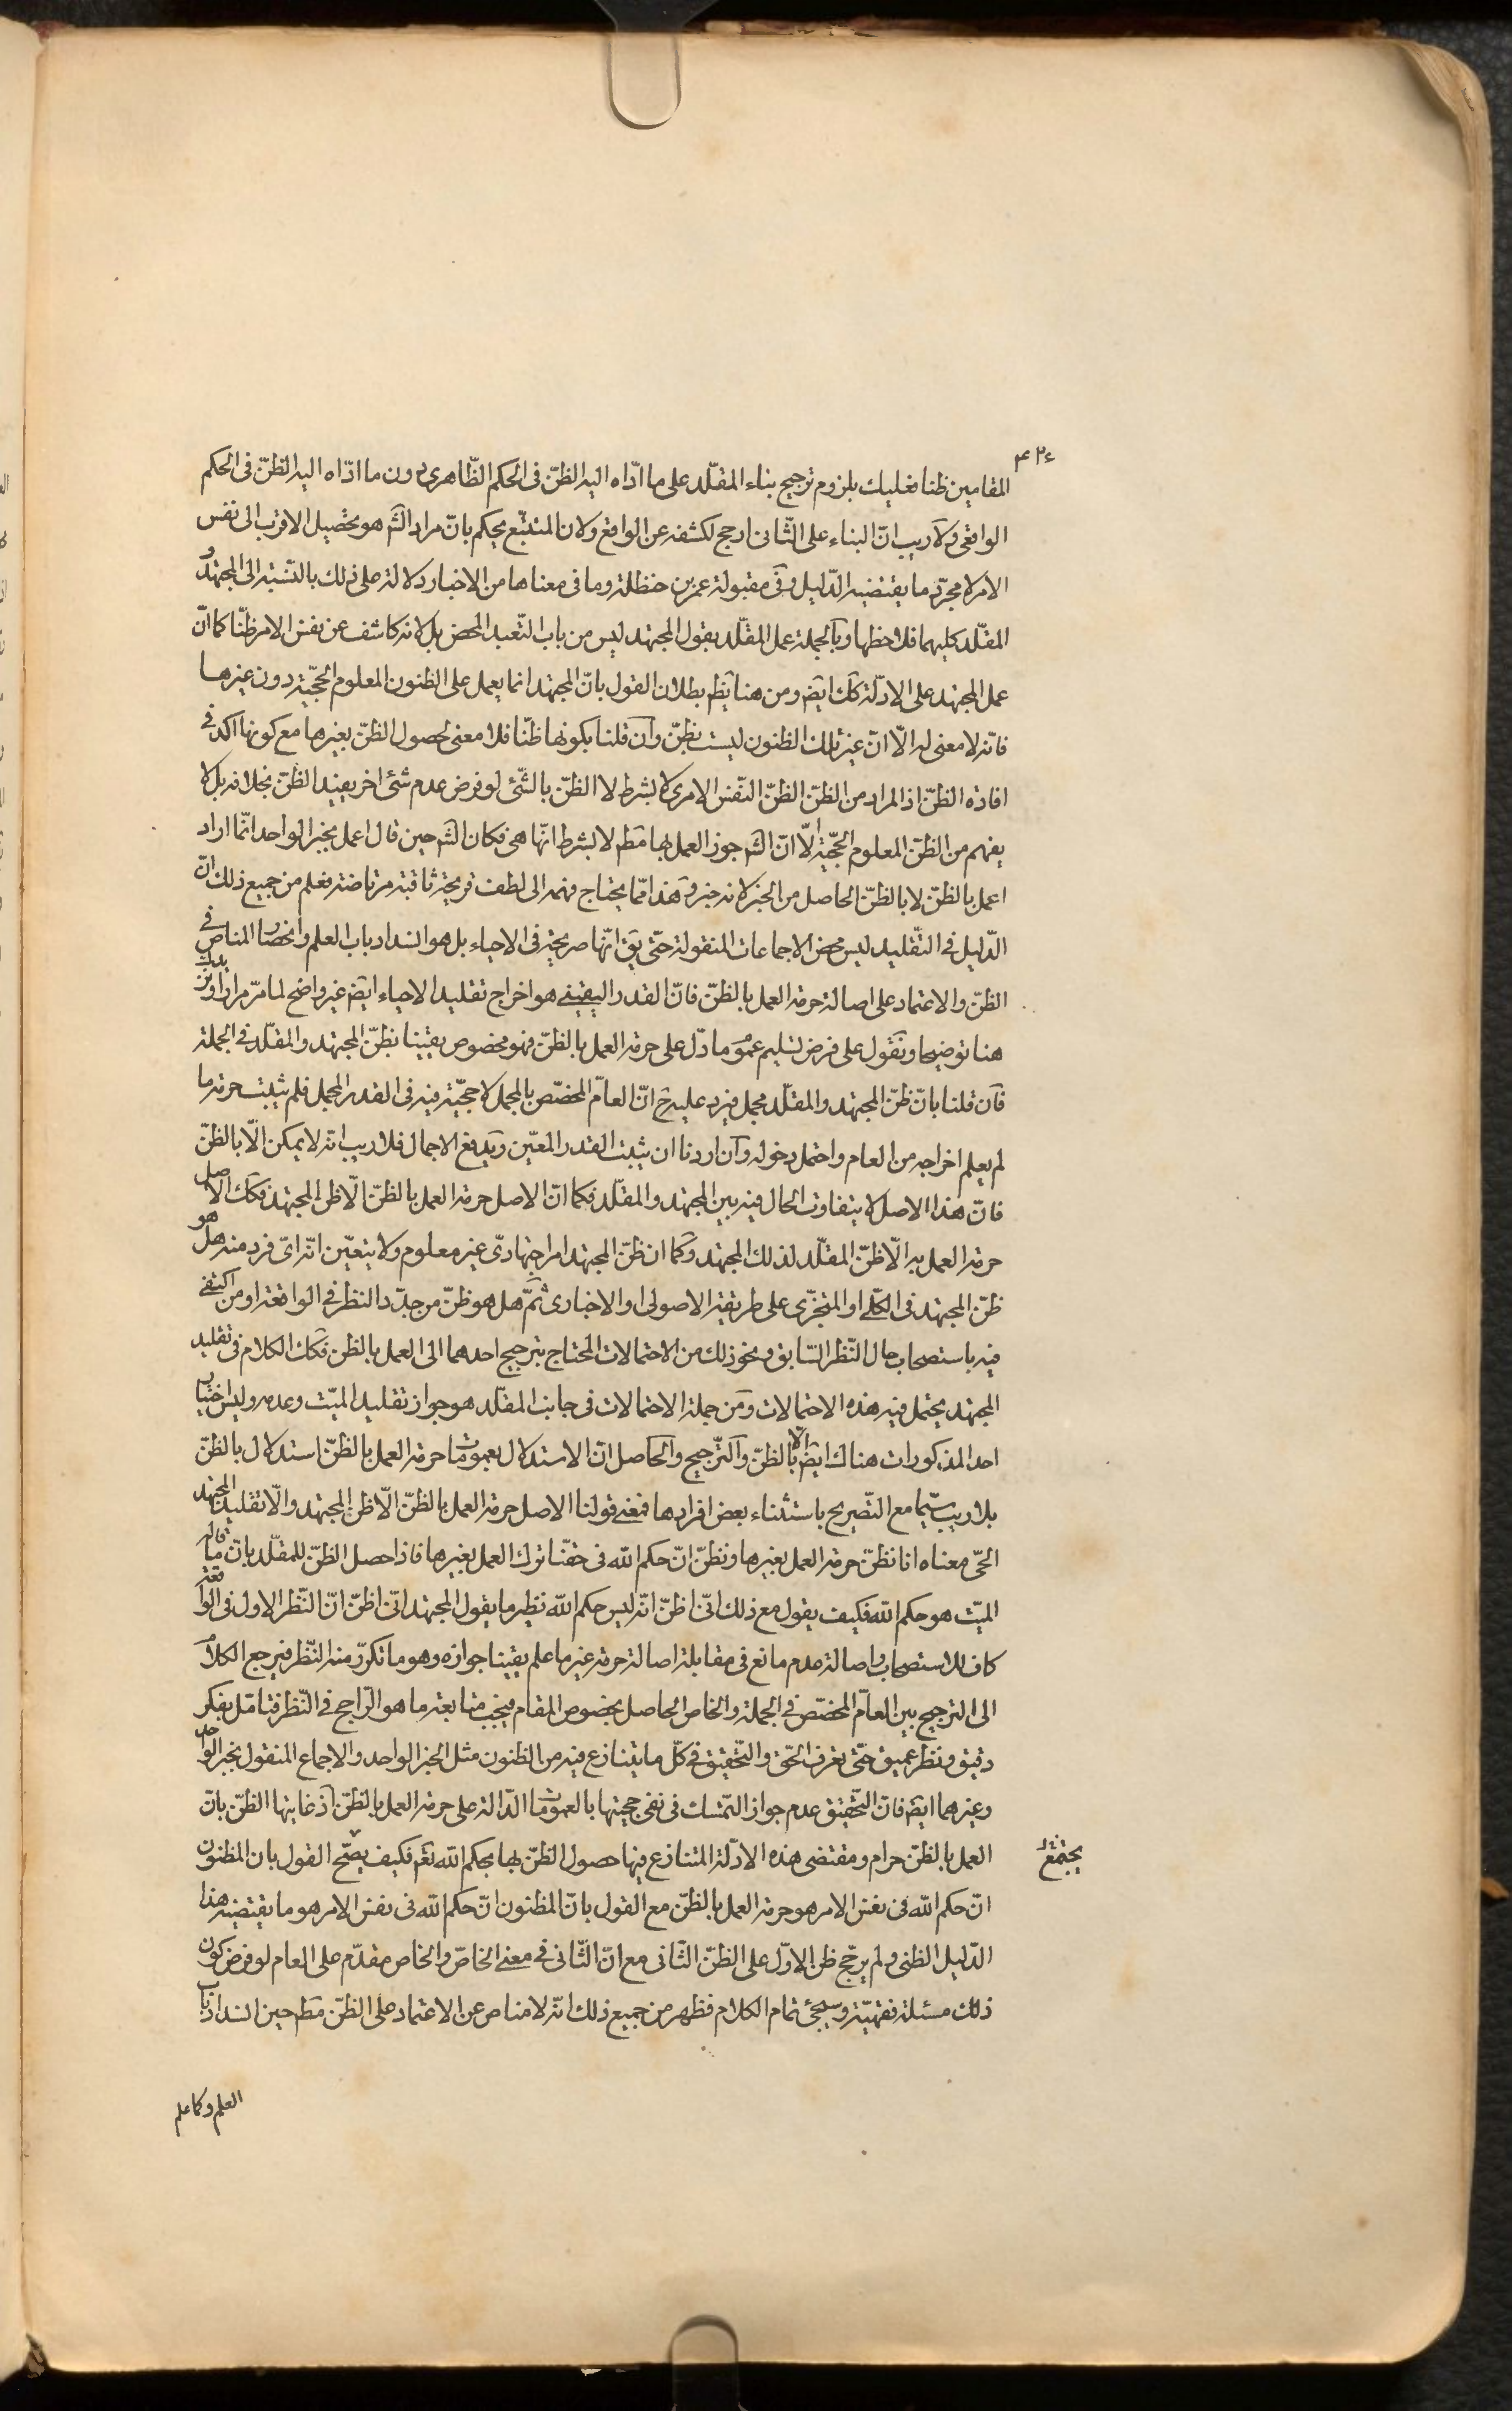 ۴۲۴
المقامین ظنا فعلیك بلزوم ترجیح بناء المقلّد علی ما ادّاه الیه الظنّ فی الحکم الظّاهری دون ما ادّاه الیه الظنّ فی الحکم
الواقعی ولا ریب انّ البناء علی الثّانی ارجح لکشفه عن الواقع ولان المتتبّع یحکم بانّ مراد الشّ هو تحصیل الاقرب الی نفس
الامر لا مجرّد ما یقتضیه الدّلیل وفی مقبولة عمر بن حنظلة وما فی معناها من الاخبار دلالة علی ذلك بالنّسبة الی المجتهد و
المقلّد کلیهما فلاحظها وبالجملة عمل المقلّد بقول المجتهد لیس من باب التّعبد المحض بل لانه کاشف عن نفس الامر ظنّا کما انّ
عمل المجتهد علی الادلّة کك ایضَ ومن هنا یَظم بطلان القول بانّ المجتهد انما یعمل علی الظنون المعلوم الحجّیّة دون غیرها
فانّه لا معنی له الّا انّ غیر تلك الظنون لیست بظنّ وان قلنا بکونها ظنّا فلا معنی لحصول الظنّ بغیرها مع کونها اکد فی
افادة الظنّ اذ المراد من الظنّ الظنّ النّفس الامری لا بشرط لا الظنّ بالشّئ لو فرض عدم شئ اخر یفید الظنّ بخلافه بل لا
یفهم من الظنّ المعلوم الحجّیّة الّا انّ الشّ جوز العمل بها مَطم لا بشرط انّها هی فکان الشّ حین قال اعمل بخبر الواحد انّما اراد
اعمل بالظنّ لا بالظنّ الحاصل من الخبر لانه خبر وَهذا ممّا یحتاج فهمه الی لطف قریحة ثاقبة مرتاضة فعلم من جمیع ذلك انّ
الدّلیل فی التّقلید لیس محض الاجماعات المنقولة حتّی یَق انّها صریحة فی الاحیاء بل هو انسداد باب العلم وانحصار المناص فی
الظنّ والاعتماد علی اصالة حرمة العمل بالظنّ فانّ القدر الیقینی هو اخراج تقلید الاحیاء ایضَ غیر واضح لما مرّ مرارا ونزیدك
هنا توضیحا ونَقول علی فرض تسلیم عموم ما دلّ علی حرمة العمل بالظنّ فهو مخصوص یقینا بظنّ المجتهد والمقلّد فی الجملة
فَان قلنا بانّ ظنّ المجتهد والمقلّد مجمل فیرد علیه حَ انّ العامّ المخصّص بالمجمل لا حجّیّة فیه فی القدر المجمل فلم یثبت حرمة ما
لم یعلم اخراجه من العام واحتمل دخوله وَان اردنا ان یثبت القدر المعیّن ویدفع الاجمال فلا ریب انّه لا یمکن الّا بالظنّ
فانّ هذا الاصل لا یتفاوت الحال فیه بین المجتهد والمقلّد فکما انّ الاصل حرمة العمل بالظنّ الّا ظن المجتهد فکك الاصل
حرمة العمل به الّا ظنّ المقلّد لذلك المجتهد وَکما ان ظنّ المجتهد امر اجتهادیّ غیر معلوم ولا یتعیّن انّه ایّ فرد منه هل هو
ظنّ المجتهد فی الکلّی او المتجزّی علی طریقة الاصولی او الاخباری ثمّ هل هو ظنّ من جدّد النظر فی الواقعة او من اکتفی
فیه باستصحاب حال النّظر السّابق ونحو ذلك من الاحتمالات المحتاج ترجیح احدهما الی العمل بالظن فکك الکلام فی تقلید
المجتهد یحتمل فیه هذه الاحتمالات وَمن جملة الاحتمالات فی جانب المقلد هو جواز تقلید المیّت وعدمه ولیس اختیار
احد المذکورات هناك ایضَ الّا بالظنّ والتّرجیح والحاصل انّ الاستدلال بعمومات حرمة العمل بالظنّ استدلال بالظنّ
بلا ریب سیّما مع التّصریح باستثناء بعض افرادها فمعنی قولنا الاصل حرمة العمل بالظنّ الّا ظن المجتهد والّا تقلید المجتهد
الحیّ معناه انا نظنّ حرمة العمل بغیرها ونظنّ انّ حکم الله فی حقّنا ترك العمل بغیرها فاذا حصل الظنّ للمقلّد بانّ ما قاله
المیّت هو حکم الله فکیف یقول مع ذلك انّی اظنّ انّه لیس حکم الله نظیر ما یقول المجتهد انّی اظنّ انّ النّظر الاول فی الواقعة
کاف للاستصحاب واصالة عدم مانع فی مقابلة اصالة حرمة غیر ما علم یقینا جوازه وهو ما تکرّر منه النّظر فیرجع الکلام
الی الترجیح بین العامّ المخصّص فی الجملة والخاص الحاصل بخصوص المقام فیجب متابعة ما هو الرّاجح فی النّظر فتامّل بفکر
دقیق ونظر عمیق حتّی تعرف الحّق والتّحقیق فی کلّ ما یتنازع فیه من الظنون مثل الخبر الواحد والاجماع المنقول بخبر الواحد
وغیرهما ایضَ فانّ التّحقیق عدم جواز التّمسّك فی نفی حجیتها بالعمومات الدّالة علی حرمة العمل بالظنّ اذ غایتها الظنّ بانّ
العمل بالظنّ حرام ومقتضی هذه الادلّة المتنازع فیها حصول الظنّ بها بحکم الله تَعم فکیف یصّح القول بان المظنون
یجتمع
انّ حکم الله فی نفس الامر هو حرمة العمل بالظنّ مع القول بانّ المظنون انّ حکم الله فی نفس الامر هو ما یقتضیه هذا
الدّلیل الظنی ولم یرجّح ظن الاوّل علی الظنّ الثّانی مع انّ الثّانی فی معنی الخاصّ والخاص مقدّم علی العام لو فرض کون
ذلك مسئلة فقهیّة وسیجئ تمام الکلام فظهر من جمیع ذلك انّه لا مناص عن الاعتماد علی الظنّ مَطم حین انسداد باب
العلم وکما علم